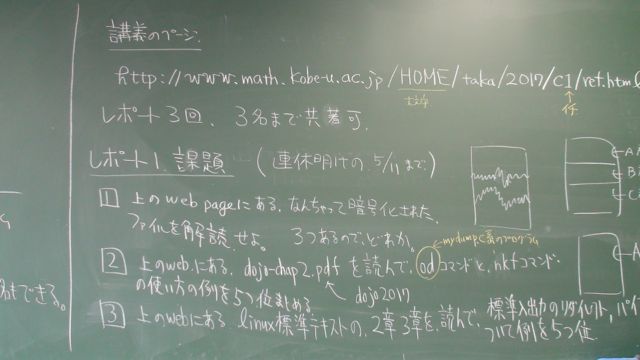 講義のページ.
http://www.math.kobe-u.ac.jp/HOME/taka/2017/c1/ref.html
大文字
レポート3回、3名まで共著可.
レポート1. 課題 (連休明けの. 5/11まで.)
1 上のweb pageにある. なんちゃって暗号化された.
ファイルを解読せよ. 3つあるので、どれか.
mydumpと
プログラム
2 上のweb.にある. dojo-chap2.pdf を読んで. odコマンドと、nkfコマンド
の使い方の例を5つ位まとめる. dojo2017
3 上のwebにある linux標準テキストの. 2章3章を、読んで、標準入出力のリダイレクト, パイ
ついて例を5つ位.
できる。